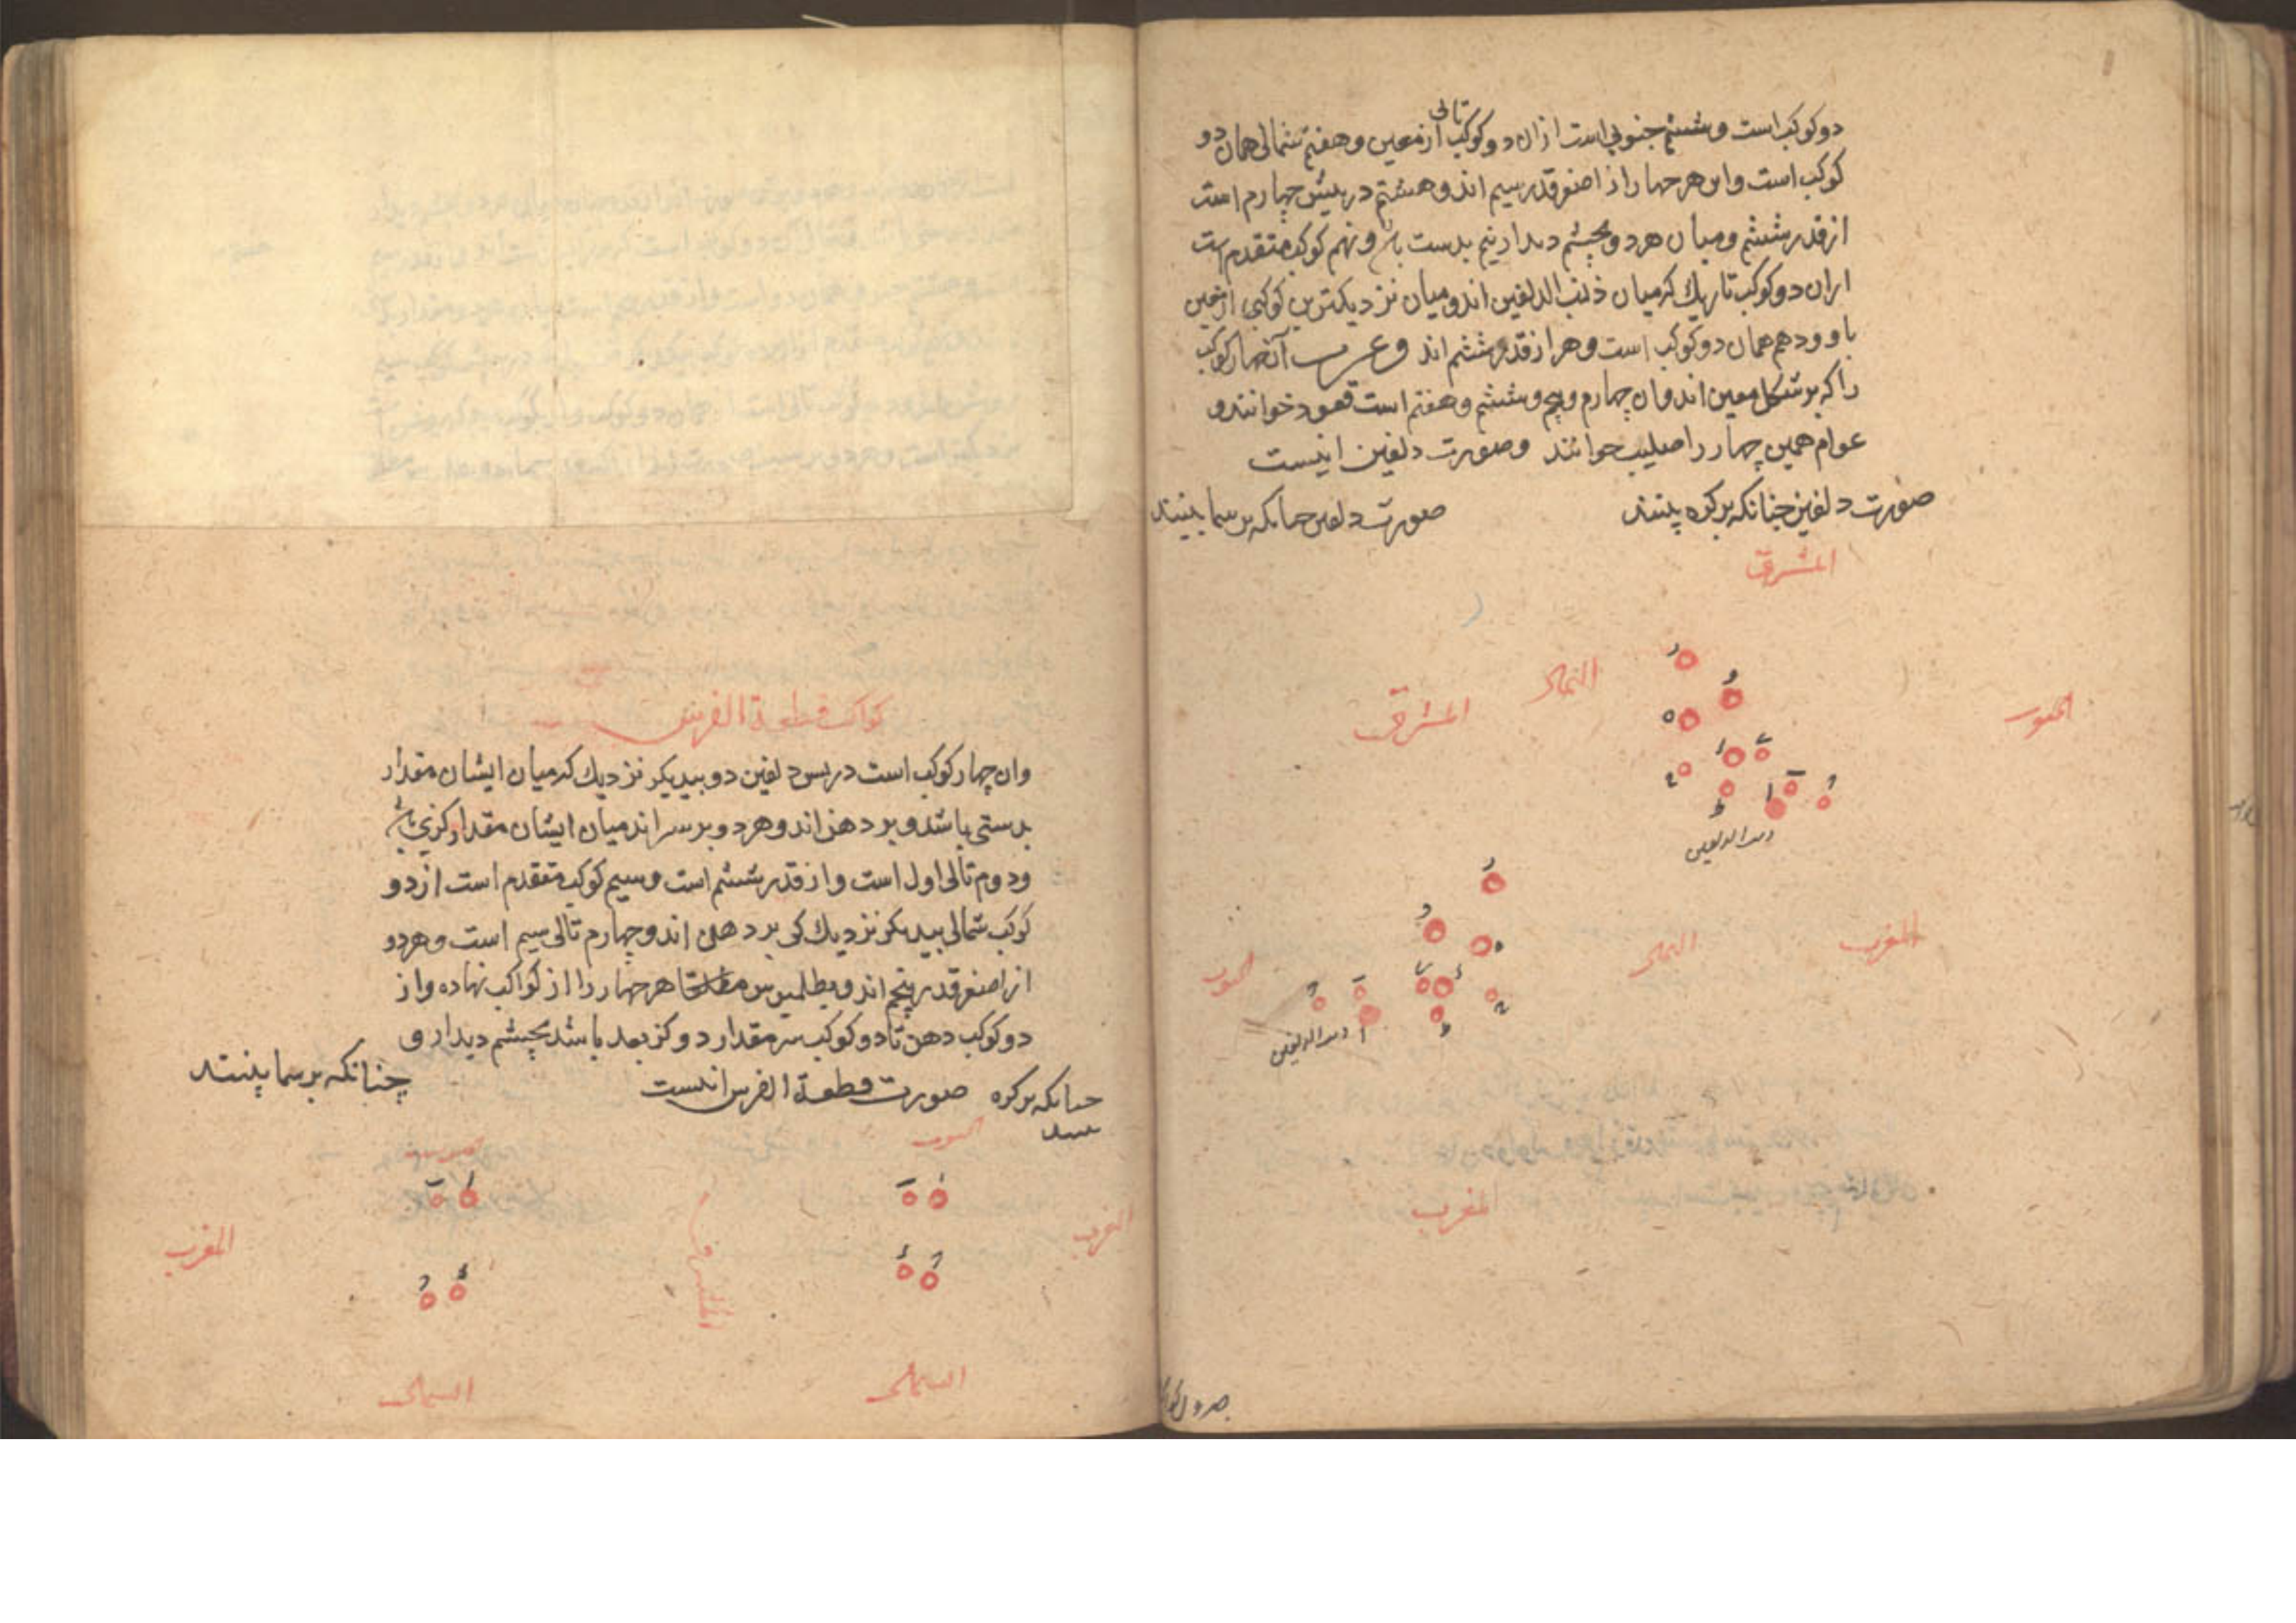 تالی
دو کوکب است و ششم جنوبی است ازان دو کوکب از معین و هفتم شمالی همان دو
کوکب است واین هر چهار از اصغر قدر سیم اند و هشتم در پیش چهارم است
از قدر ششم و میان هر دو بچشم دیدار نیم بدست باشد و نهم کوکب متقدم است
ازان دو کوکب تاریک که میان ذنب الدلفین اند و میان نزدیکترین کوکبی از معین
با و و دهم همان دو کوکب است و هر از قدر ششم اند و عرب آن چهار کوکب
را که بر شکل معین اند وان چهارم و پنجم و ششم و هفتم است قعود خوانند و
عوام همین چهار را صلیب خوانند و صورت دلفین اینست
صورت دلفین چنانکه بر کره بینند
صورت دلفین چنانکه بر سما بینند
المشرق
الشمال
المشرق
الجنوب
ذنب الدلفین
المغرب
الشمال
الجنوب
ذنب الدلفین
المغرب
کواکب قطعة الفرس
وان چهار کوکب است در پس دلفین دو بیدیکر نزدیك که میان ایشان مقدار
بدستی باشد و بر دهن اند و هر دو بر سر اند میان ایشان مقدار کزی باشد
و دوم تالی اول است و از قدر ششم است و سیم کوکب متقدم است از دو
کوکب شمالی بیدیکر نزدیك کی بر دهن اند و چهارم تالی سیم است و هر دو
از اصغر قدر پنجم اند و بطلمیوس مطلقا هر چهار را از کواکب نهاده و از
دو کوکب دهن تا دو کوکب سر مقدار دو کز بعد باشد بچشم دیدار و
صورت قطعة الفرس اینست
چنانکه بر کره
بینند
چنانکه بر سما بینند
الجنوب
الجنوب
المغرب
المشرق
المغرب
الشمال
الشمال